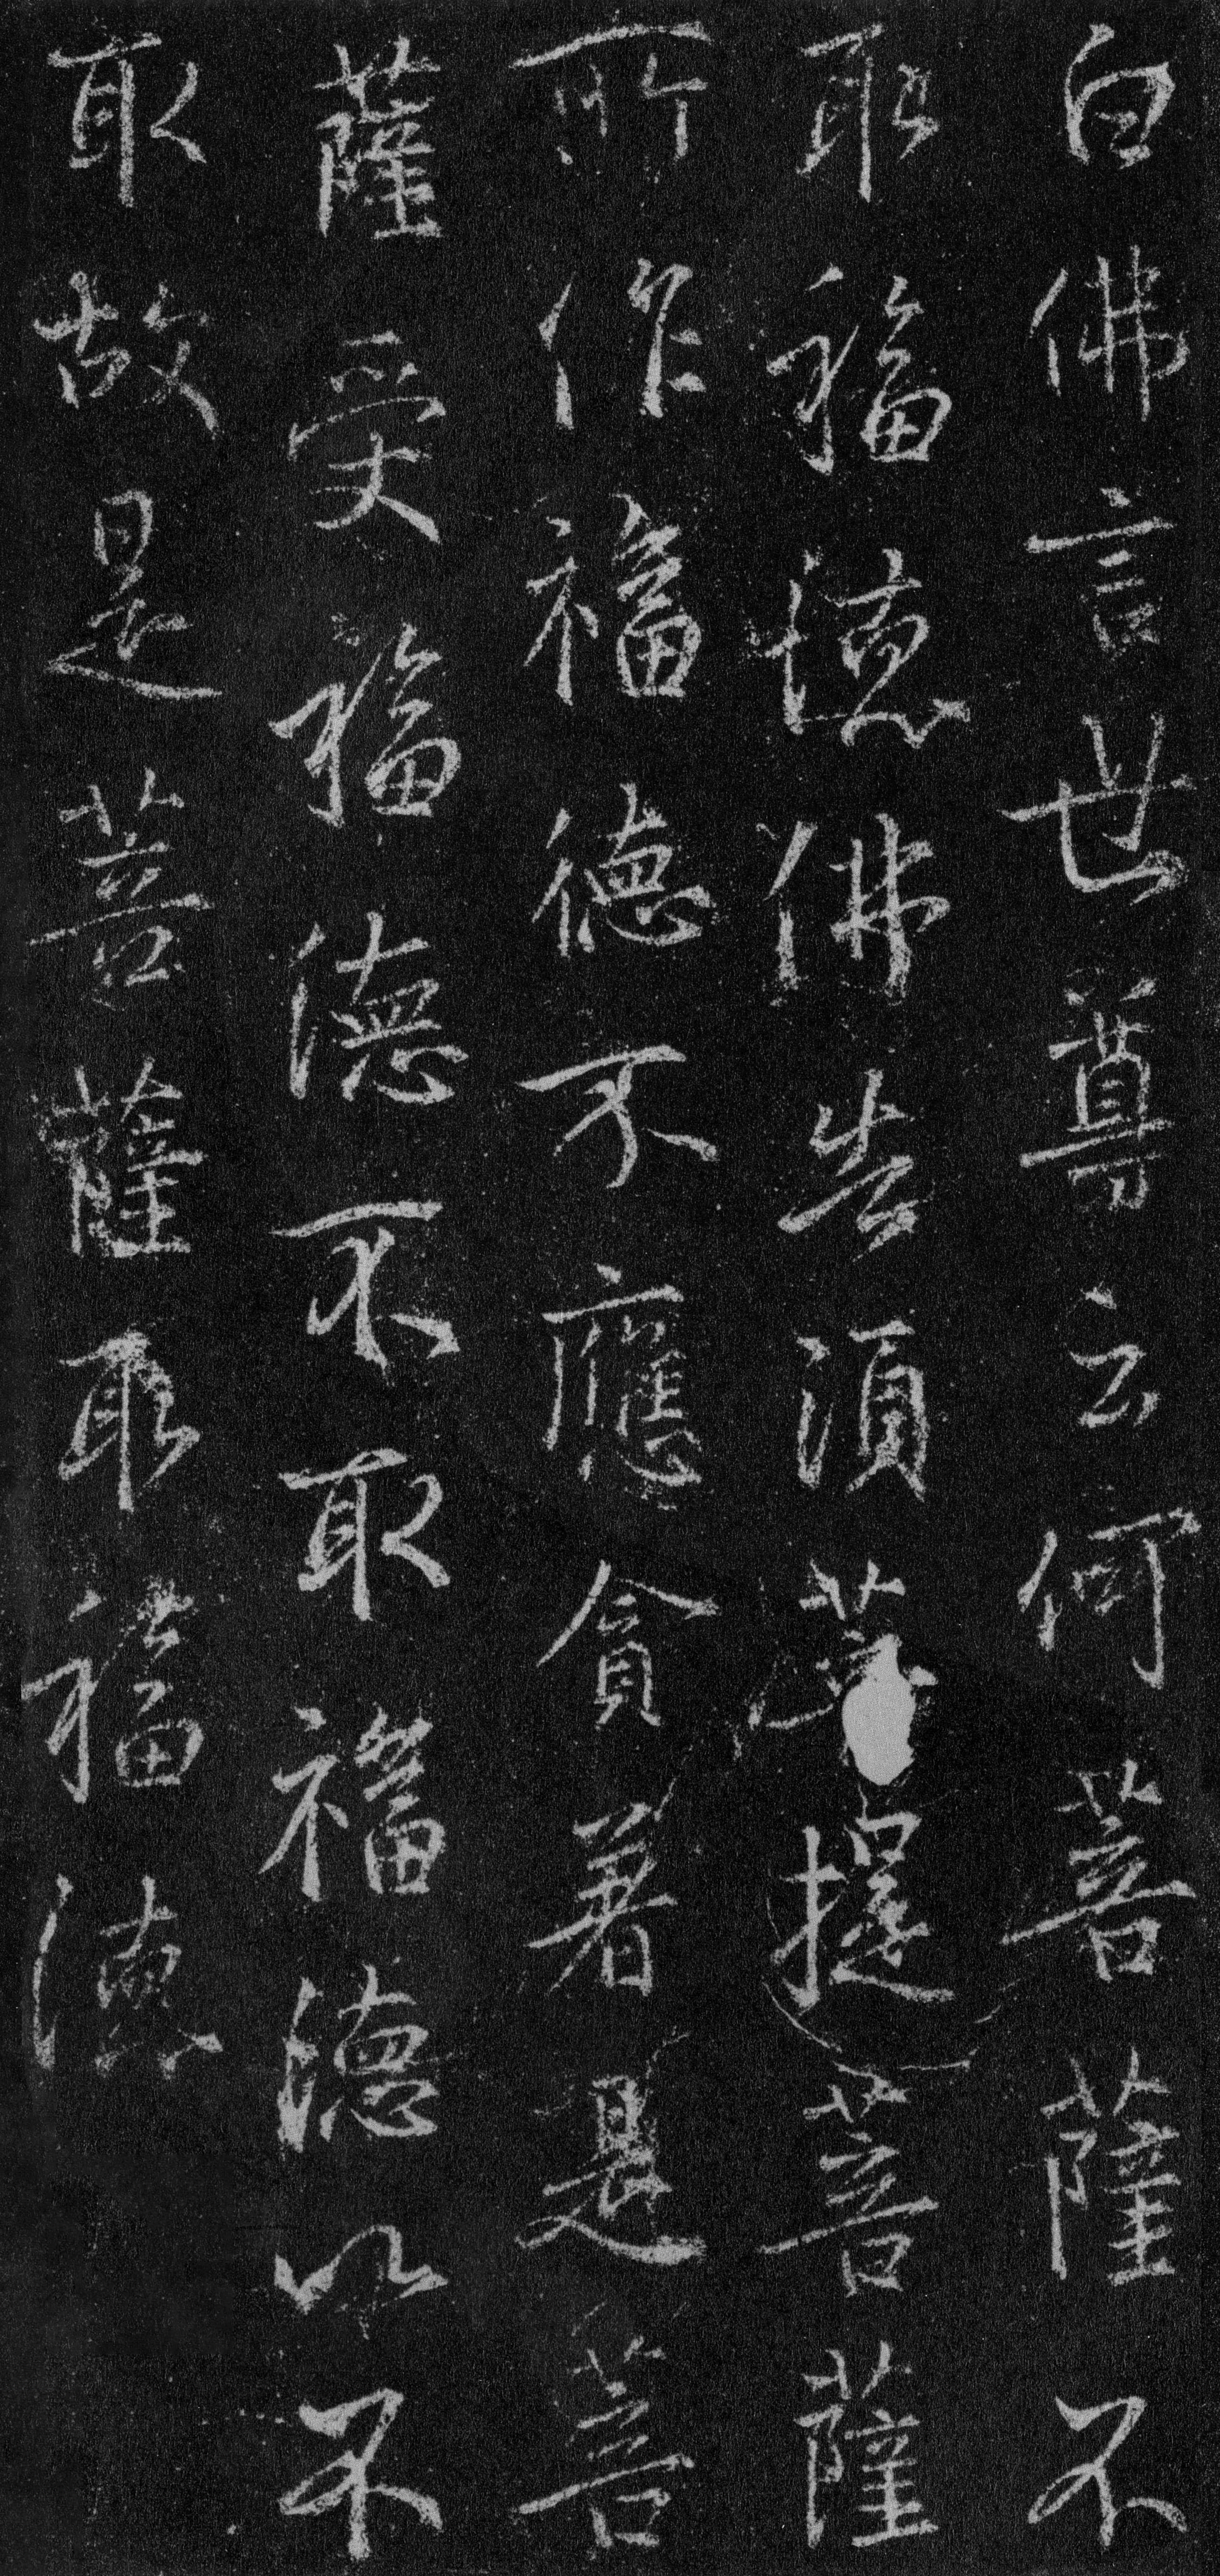 白佛言世尊云何菩薩不
取福德佛告須菩提菩薩
所作福德不應貪著是菩
薩受福德不取福德以不
取故是菩薩取福德